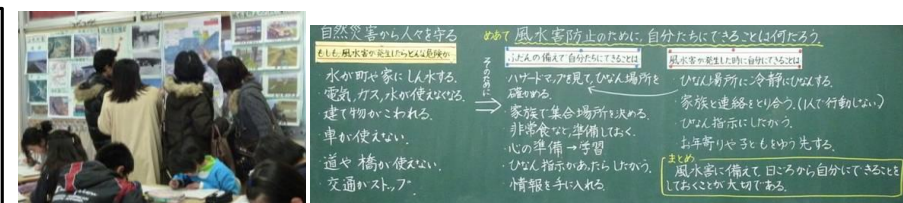 自然災害から人々を守る
めあて 風水害防止のために、自分たちにできることは何だろう。
もしも、風水害が発生したらどんな危険が
・水が町や家にしん水する。
・電気、ガス、水が使えなくなる。
・建て物がこわれる。
・車が使えない。
・道や橋が使えない。
・交通がストップ。
そのために
ふだんの備えで自分たちにできることは
・ハザードマップを見て、ひなん場所を
確かめる。
・家族で集合場所を決める。
・非常食など、準備しておく。
・心の準備→学習
・ひなん指示があったらしたがう。
・情報を手に入れる。
風水害が発生した時に自分にできることは
・ひなん場所に冷静にひなんする。
・家族と連絡をとり合う。(1人で行動しない)
・ひなん指示にしたがう。
・お年寄りや子どもをゆう先する。
まとめ
風水害に備えて、日ごろから自分にできることを
しておくことが大切である。